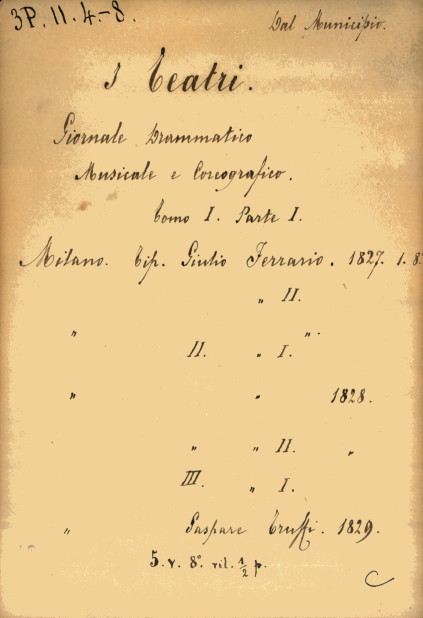 3P. 11. 4.-8.
Dal Municipio.
I Teatri.
Giornale Drammatico
Musicale e Coreografico.
Tomo I. Parte I.
Milano. Tip. Giulio Ferrario. 1827. 1. 8
" II.
" ".
II. " I.
" " 1828.
" " II. "
III. " I.
" Gaspare Truffi. 1829.
5. v. 8º. ril. ½ p.
C